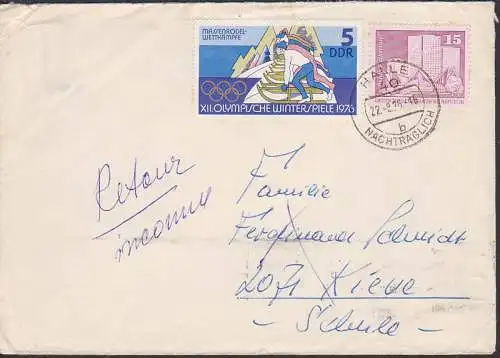 MASSENRODEL-
WETTKÄMPFE
5
DDR
XII. OLYMPISCHE WINTERSPIELE 1976
15
HALLE
b
NACHTRÄGLICH
Retour
inconnu
Familie
Ferdinand Schmidt
2071 Kieve
- Schule -